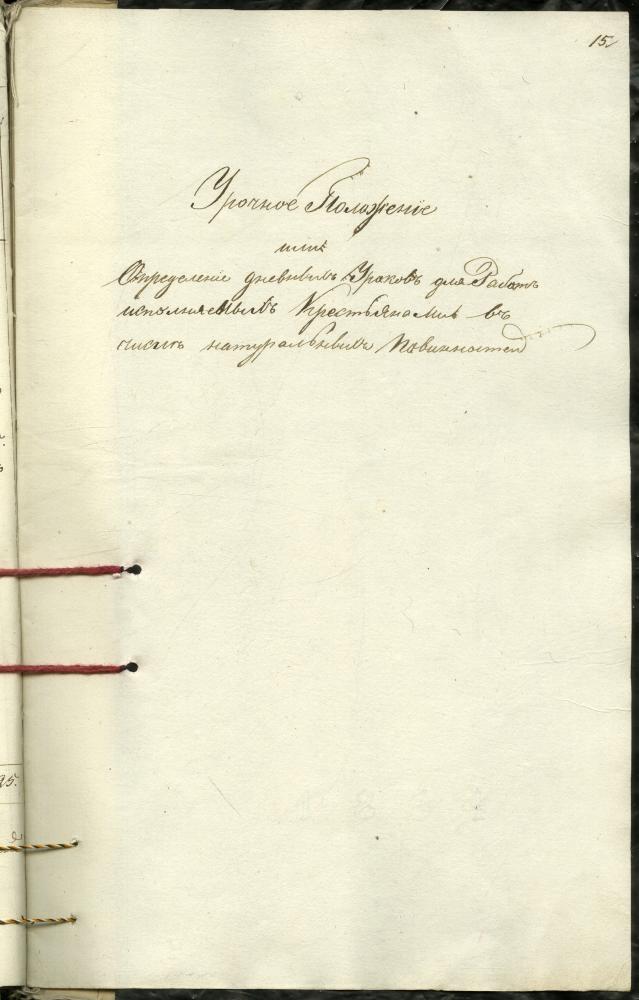 15.
Урочное Положеніе
или
Опредѣленіе дневныхъ Уроковъ для Работъ
исполняемыхъ Крестьянами въ
числѣ натуральныхъ Повинностей
25.